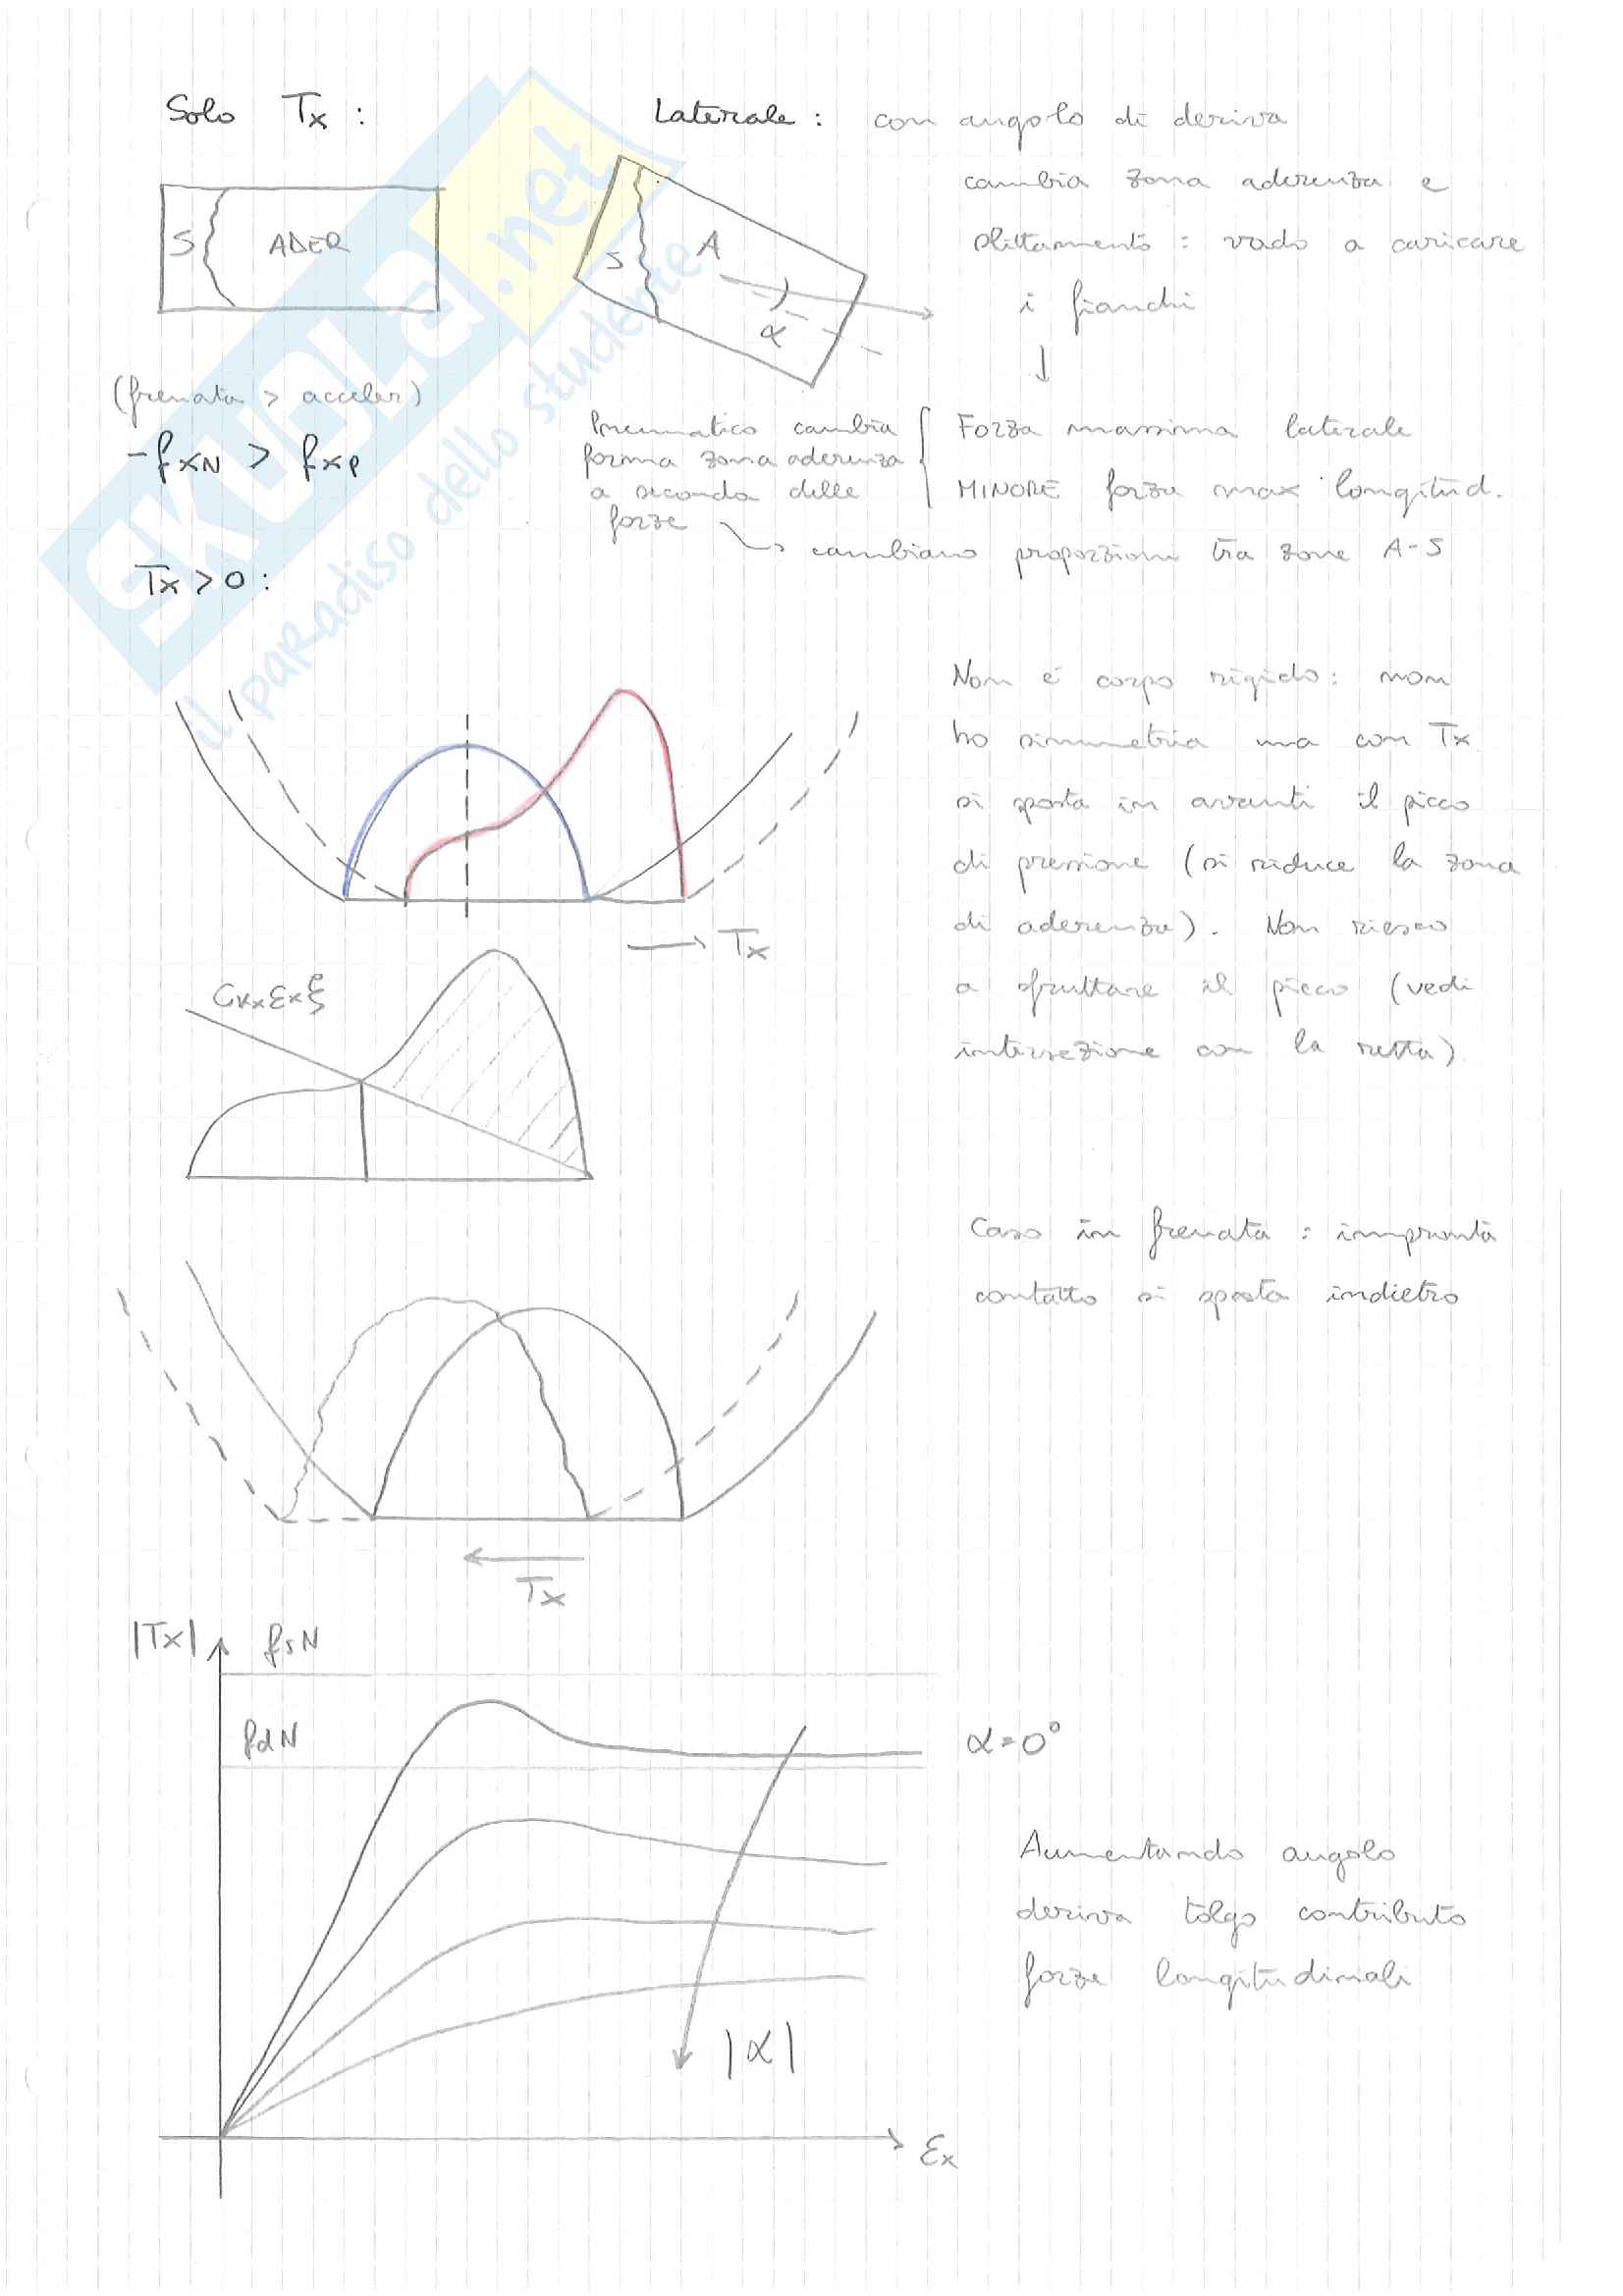 Solo Tx :
Laterale : con angolo di deriva
cambia zona aderenza e
slittamento : vado a caricare
i fianchi
S ADER
S A
α
(frenata > acceler)
-fxN > fxP
Pneumatico cambia
forma zona aderenza
a seconda delle
forze
Forza massima laterale
MINORE forza max longitud.
cambiano proporzioni tra zone A-S
Tx > 0 :
Non è corpo rigido : non
ho simmetria ma con Tx
si sposta in avanti il picco
di pressione (si riduce la zona
di aderenza). Non riesco
a sfruttare il picco (vedi
intersezione con la retta)
Tx
CKx εx ξ
Caso in frenata : impronta
contatto si sposta indietro
Tx
|Tx|
fsN
fdN
α=0°
Aumentando angolo
deriva tolgo contributo
forze longitudinali
|α|
εx
SKUOLA.net
il paradiso dello studente